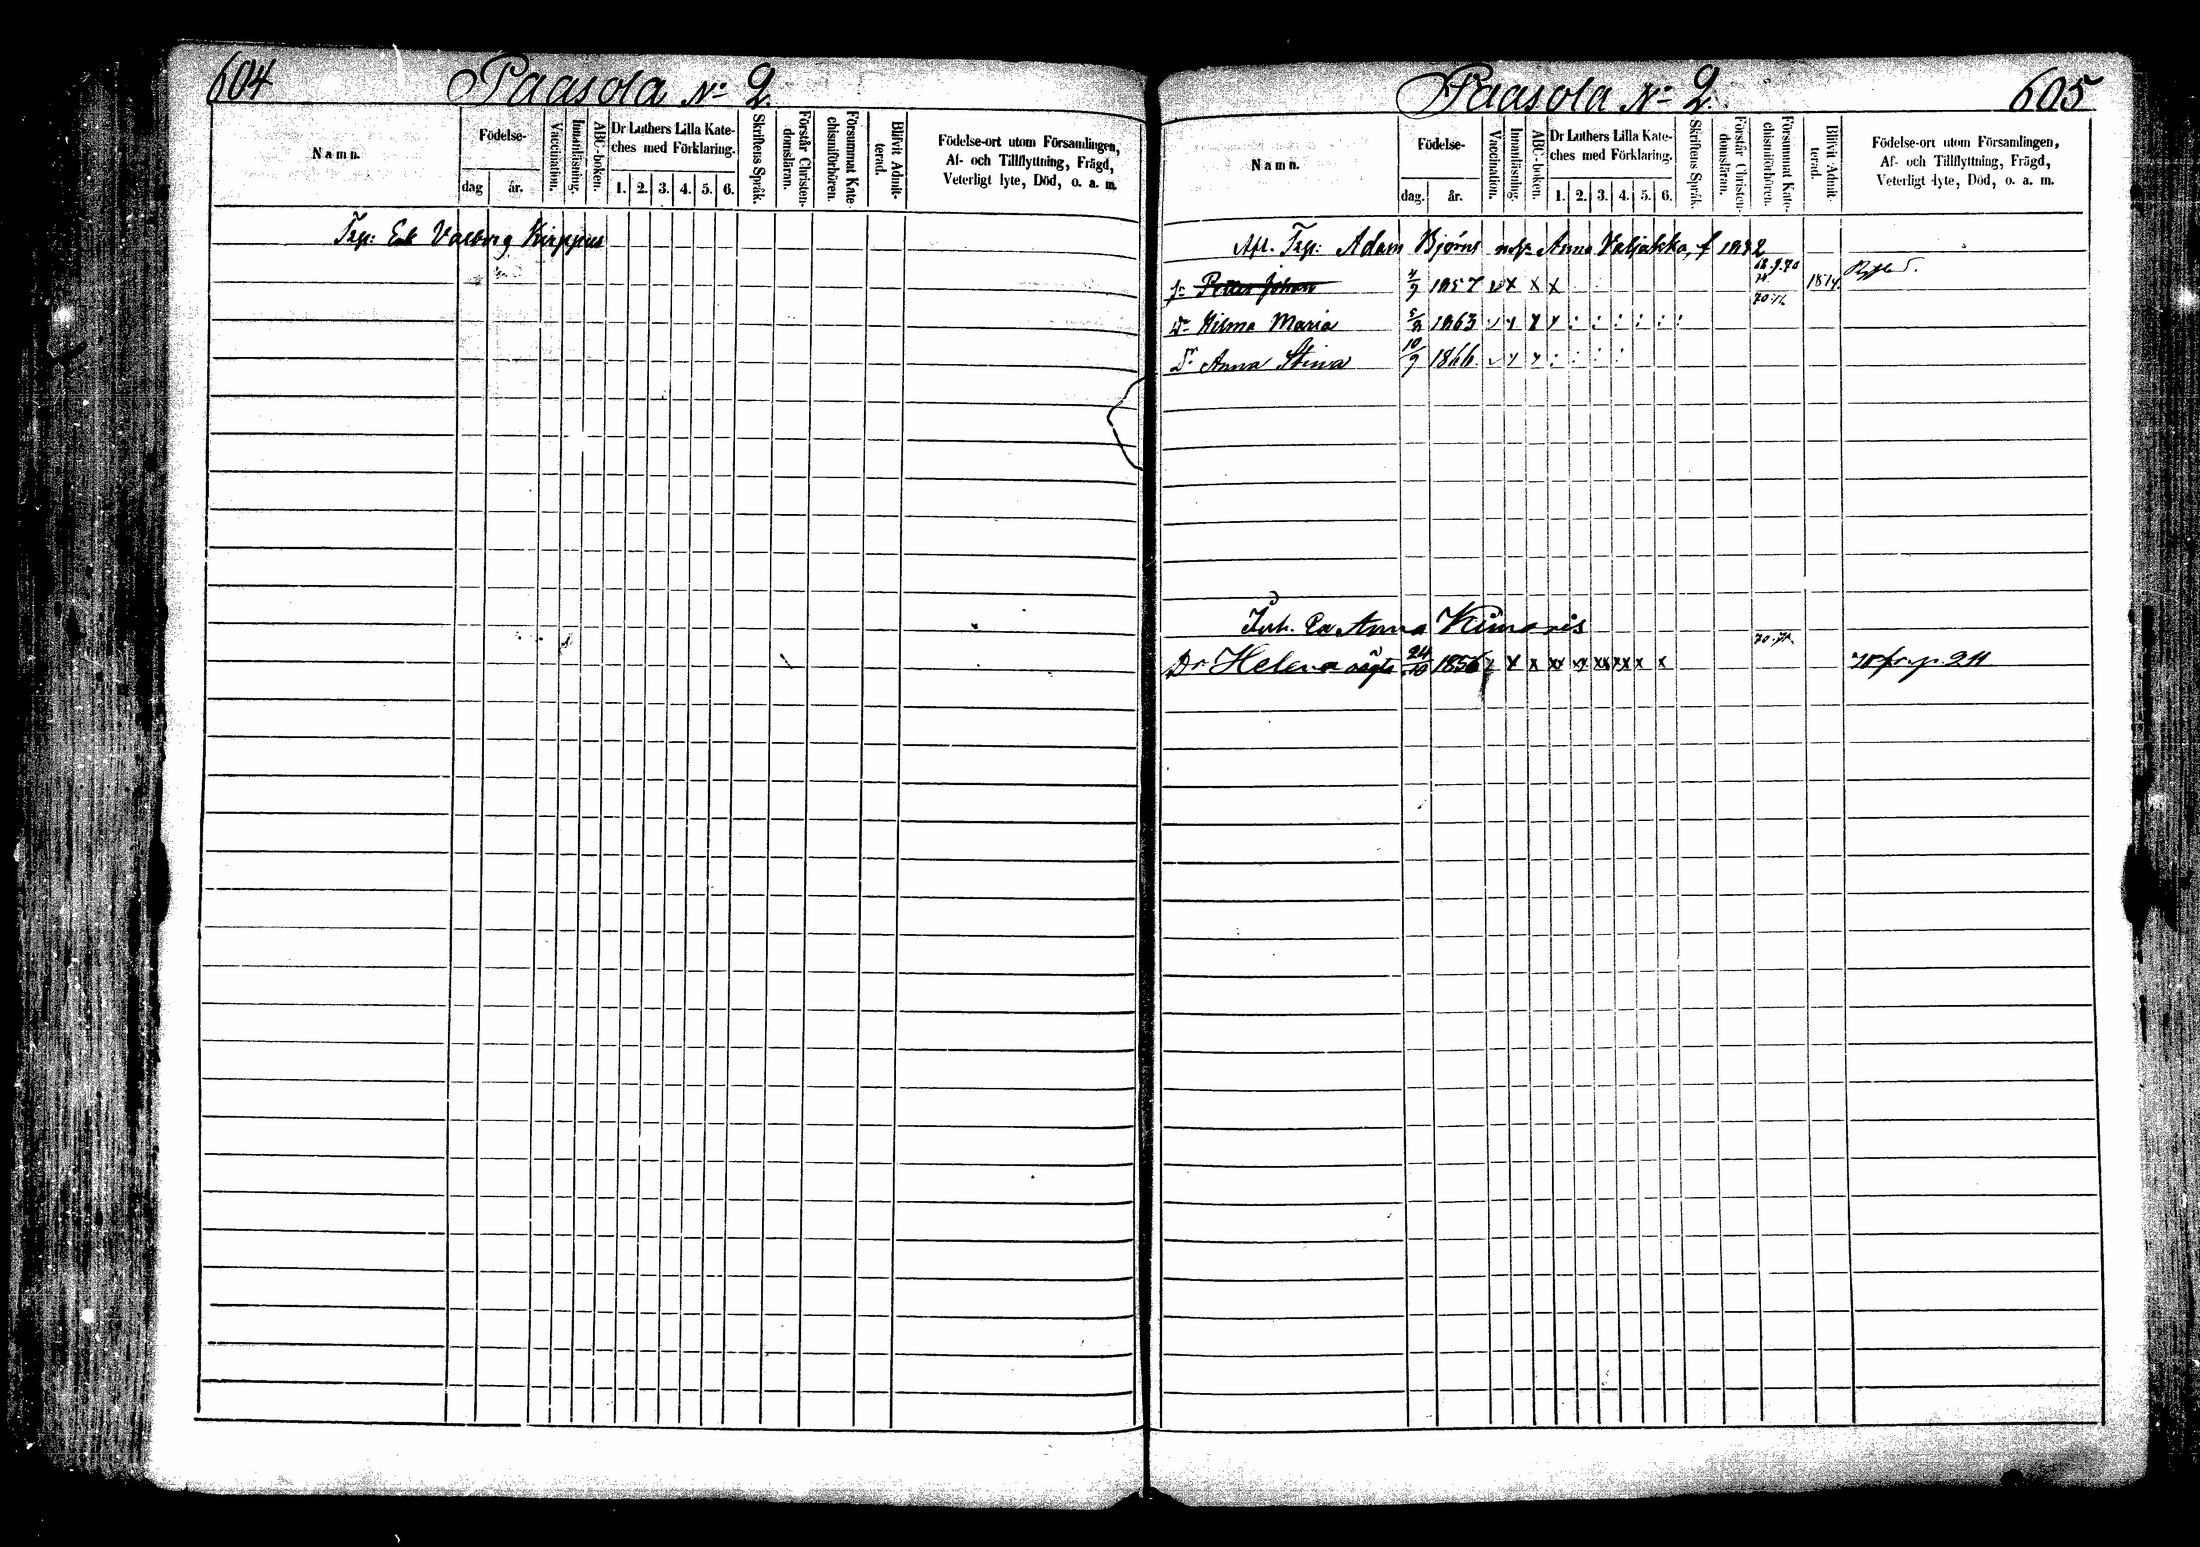 604
Paasola No 2.
Namn.
Födelse-
dag
år.
Vaccination.
Innanläsning.
ABC-boken.
Dr Luthers Lilla Kate-
ches med Förklaring.
1. 2. 3. 4. 5. 6.
Skriftens Språk.
Förstår Christen-
domsläran.
Försummat Kate-
chismiförhören.
Blifvit Admit-
terad.
Födelse-ort utom Församlingen,
Af- och Tillflyttning, Frägd,
Veterligt lyte, Död, o. a. m.
Torp: Enk Valborg Kirppus
Paasola No 2.
605
Namn.
Födelse-
dag.
år.
Vaccination.
Innanläsning.
ABC-boken.
Dr Luthers Lilla Kate-
ches med Förklaring.
1. 2. 3. 4. 5. 6.
Skriftens Språk.
Förstår Christen-
domsläran.
Försummat Kate-
chismiförhören.
Blifvit Admit-
terad.
Födelse-ort utom Församlingen,
Af- och Tillflyttning, Frägd,
Veterligt lyte, Död, o. a. m.
Afl. Torp: Adam Björns Anna Valjakka, f 1832
Petter Johan 4/9 1857 v x x x 1874.
Dr Hilma Maria 5/8 1863 v x x x
Dr Anna Stina 10/9 1866 v x x
Inh. Ea Anna Kimaris
Dr Helena oägta 24/10 1856 x x x xx xx xx xx x x 70.71.